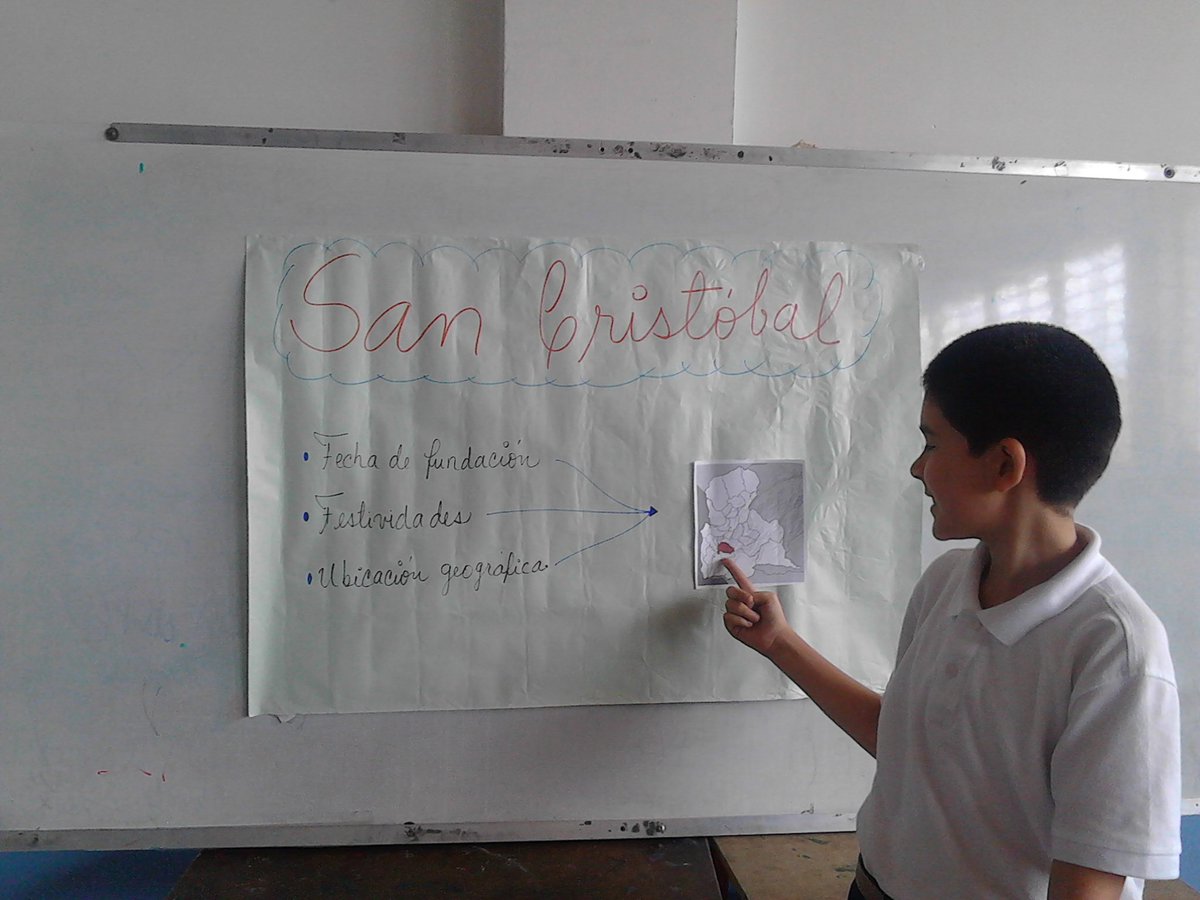 San Cristóbal
• Fecha de fundación
• Festividades
• Ubicación geográfica.